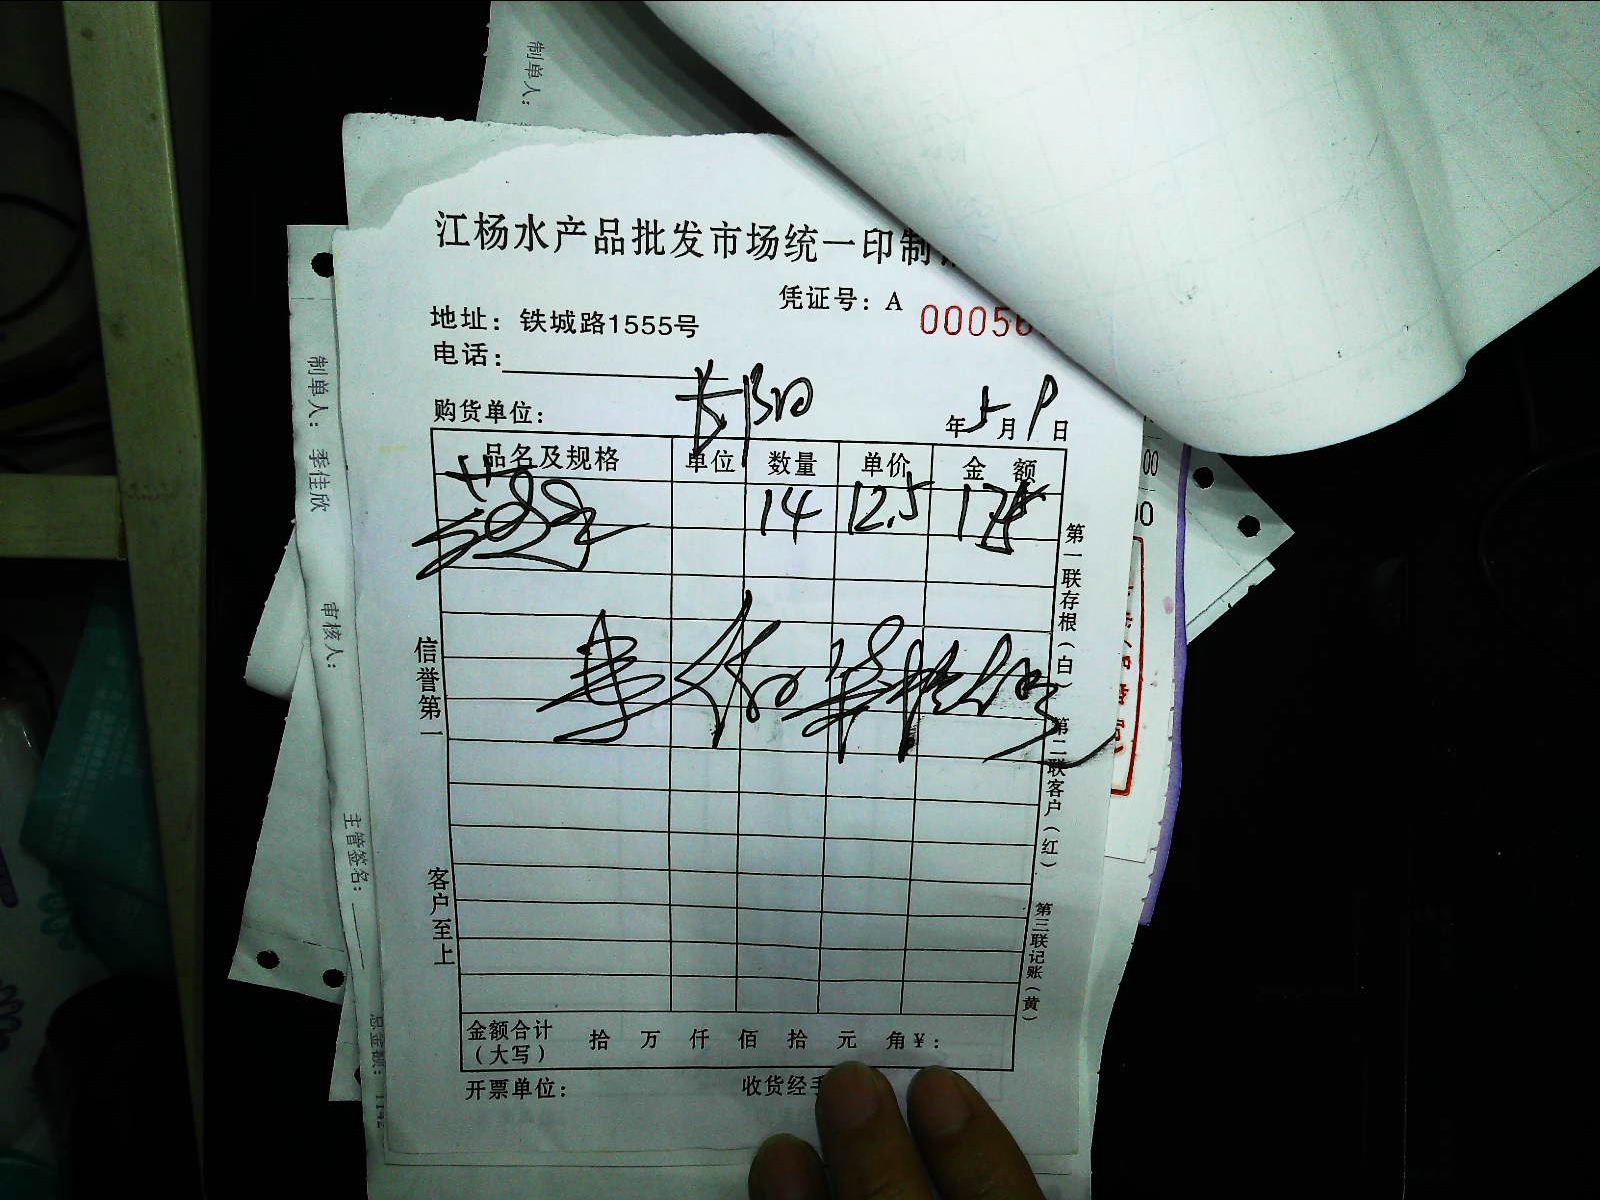 制单人：
江杨水产品批发市场统一印制
凭证号：A 00056
地址：铁城路1555号
电话：
购货单位： 年5月9日
品名及规格 单位 数量 单价 金额
14 12.5 175
制单人：季佳欣
审核人：
主管签名：
总金额：
信誉第一
客户至上
第一联存根（白）
第二联客户（红）
第三联记账（黄）
金额合计
（大写） 拾 万 仟 佰 拾 元 角￥：
开票单位： 收货经手